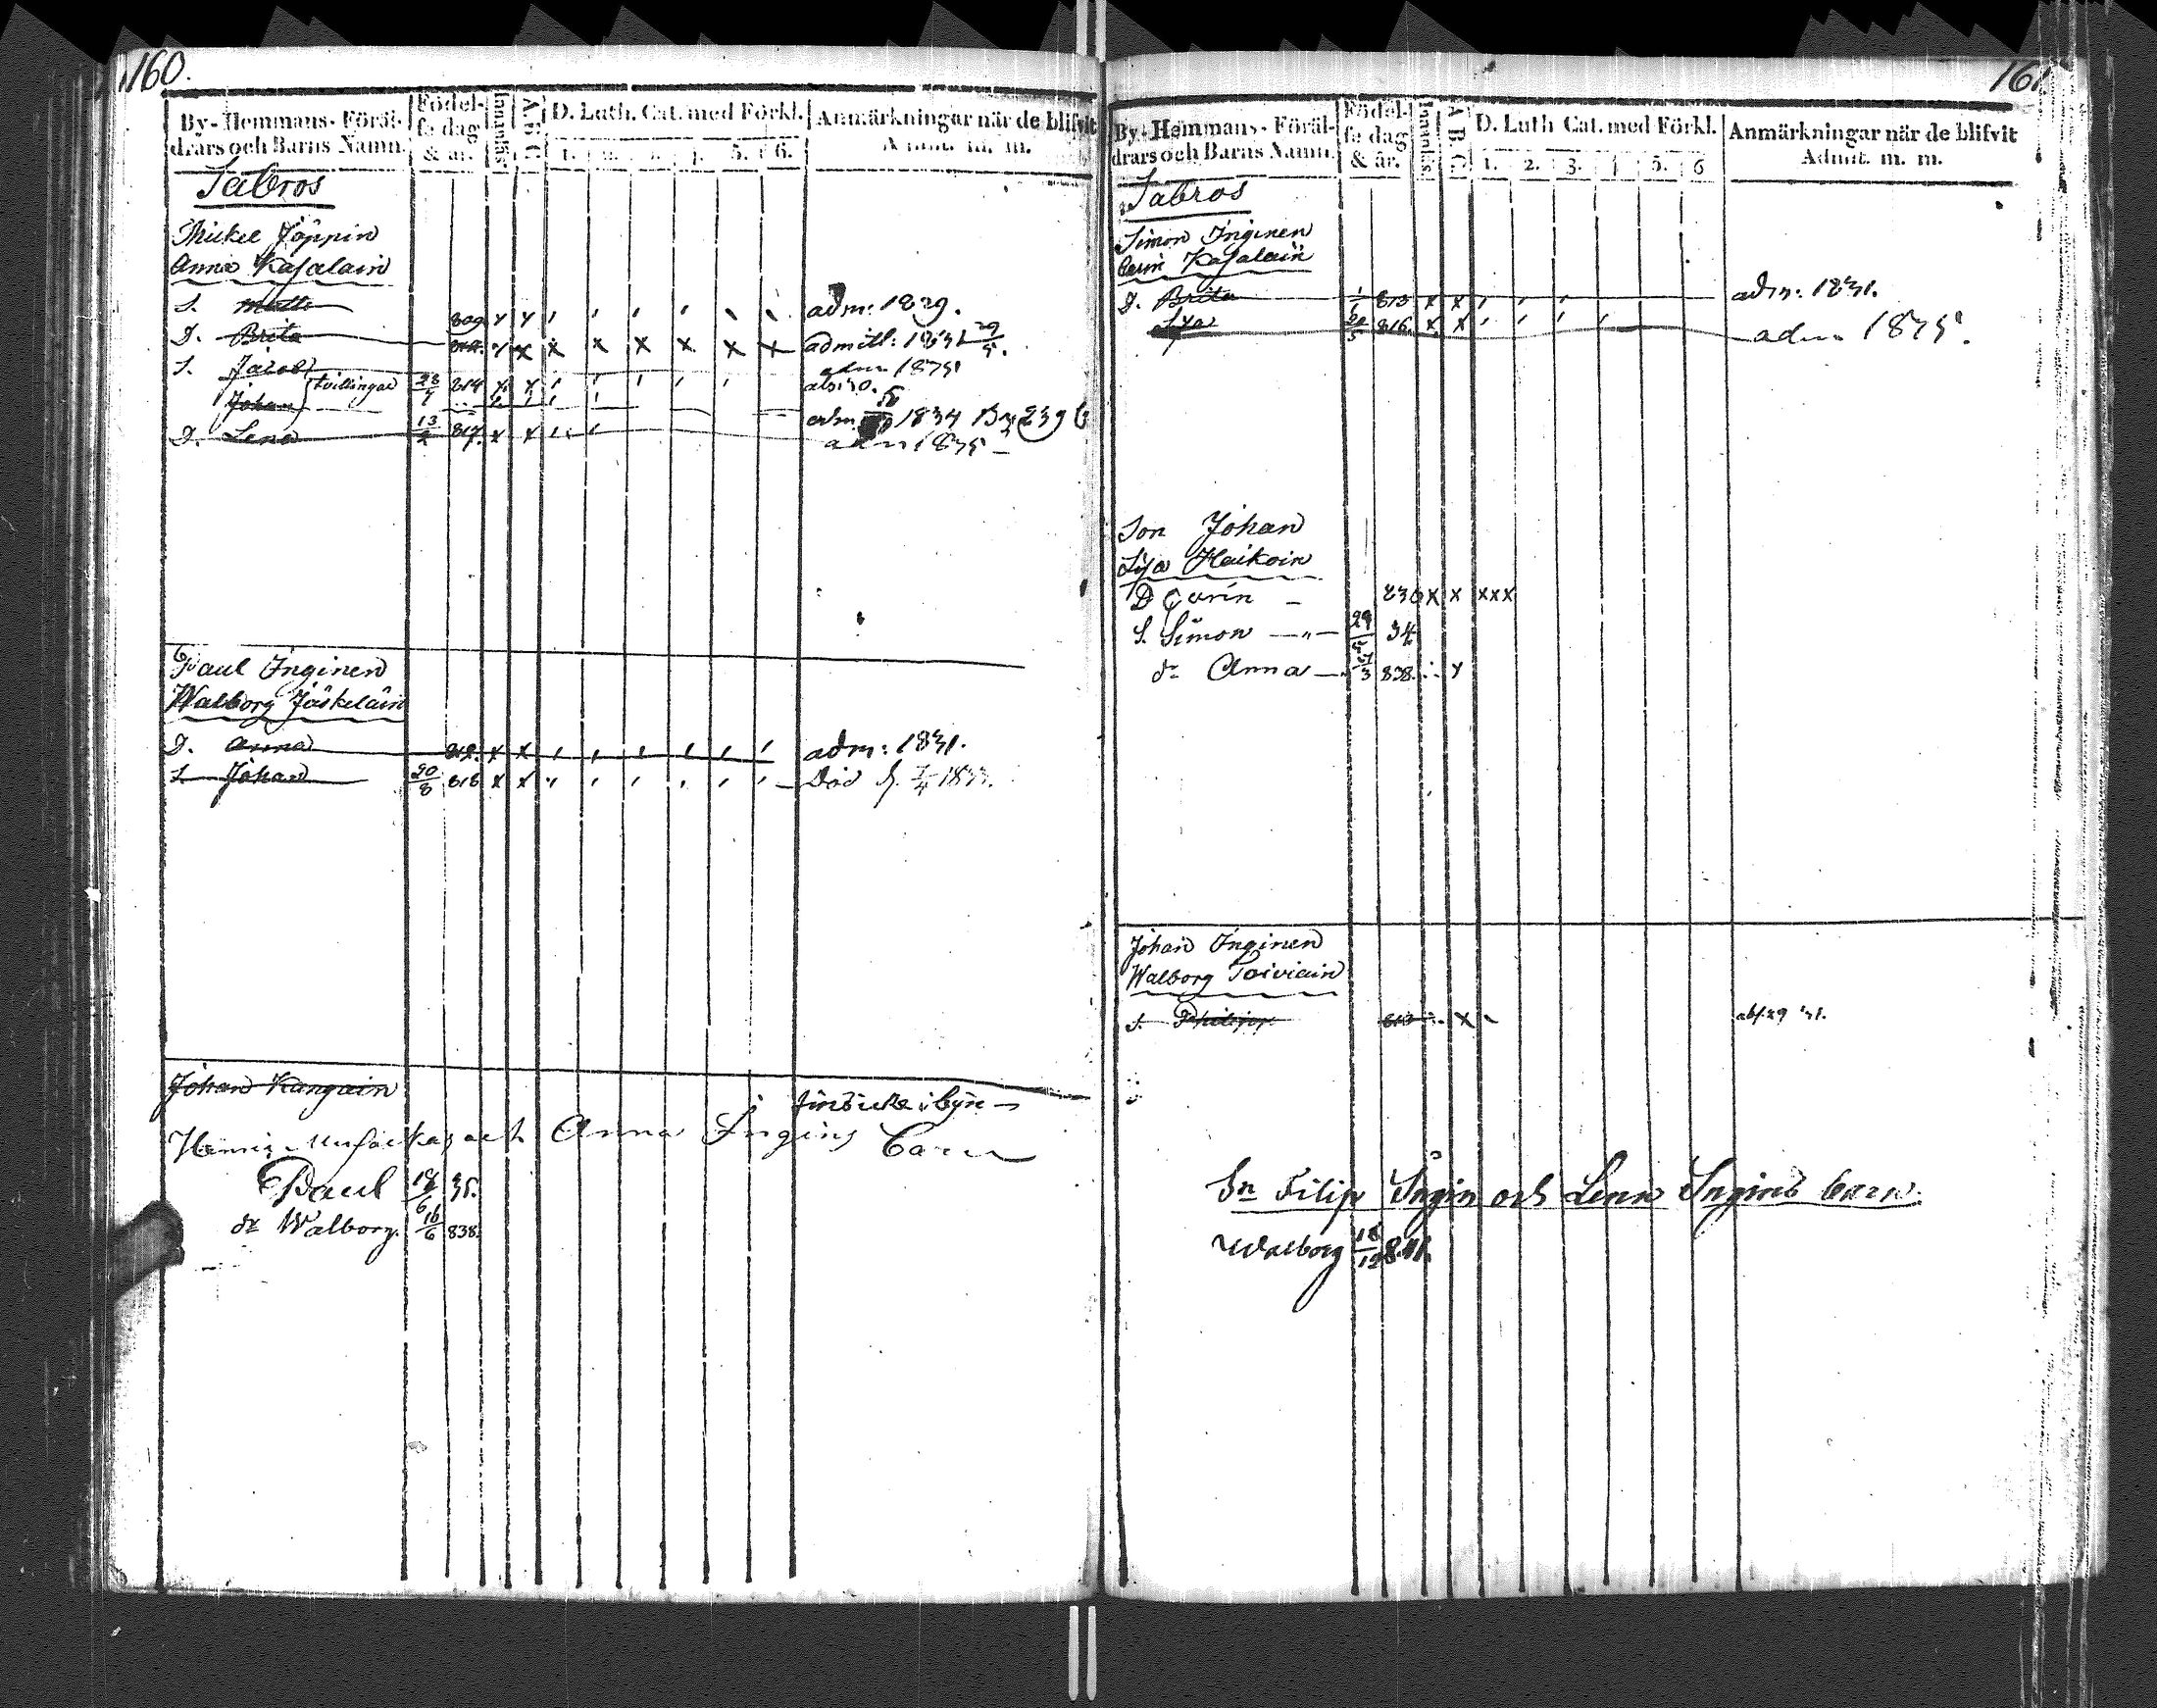 160.
By-Hemmans-Föräl-
drars och Barns Namn.
Födel-
se dag
& år.
Innanläs.
A.B.C.
D. Luth. Cat. med Förkl.
1. 2. 3. 4. 5. 6.
Anmärkningar når de blifvit
Admit. m. m.
Sabros
Mickel Jöppin
Anna Kasalain
S. Matts 809. adm: 1829.
D. Brita admitt: 1831 29/5.
S. Jacob tvillingar 23/7 814
Johan 1834
D. Lena 13/2 817.
Paul Inginen
Walborg Jäskeläin
D. Anna 812. adm: 1831.
S. Johan 20/8 816 Död d. 7/4 1833.
Johan Kangain
Henric och Anna Ingins barn
Paul 18/6 35.
dr Walborg. 16/6 838.
161.
By-Hemmans-Föräl-
drars och Barns Namn.
Födel-
se dag
& år.
Innanläs.
A.B.C.
D. Luth Cat. med Förkl.
1. 2. 3. 4. 5. 6
Anmärkningar når de blifvit
Admit. m. m.
Sabros
Simon Inginen
Carin Kasalain
D. Brita 1/1 813 x x adm: 1831.
Lisa 20/5 816. x x adm 1835.
Son Johan
Lisa Haikoin
D Carin 830 x x xxx
S. Simon 29/5 34
dr Anna 838.
Johan Inginen
Walborg Toiviain
S. Philip
Sn Filip Ingin och Lena Ingins barn.
Walborg 18/12 841.